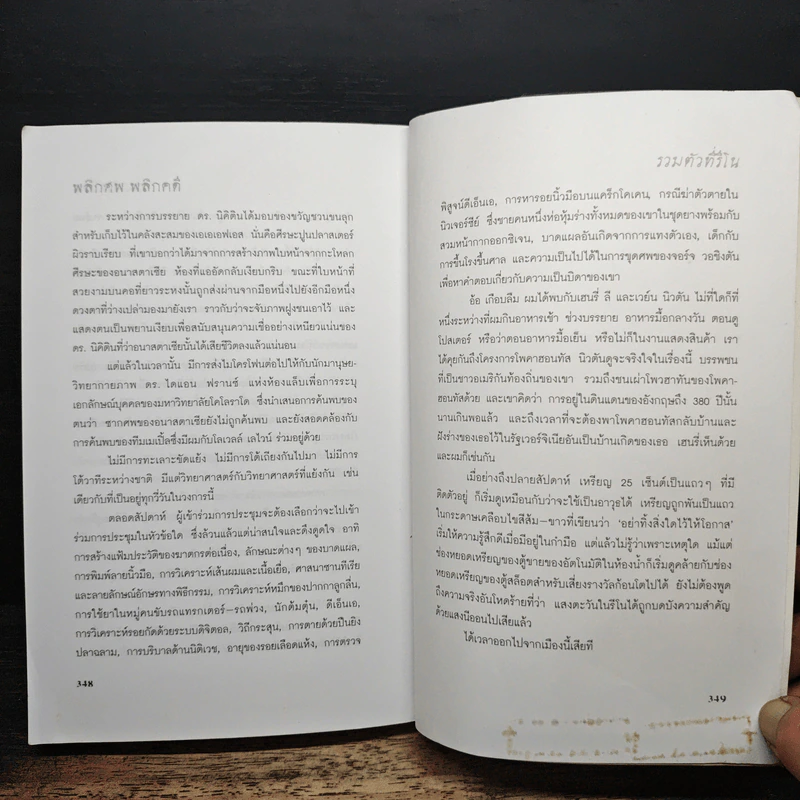 พลิกศพ พลิกคดี
ระหว่างการบรรยาย ดร. นิคิตินได้มอบของขวัญชวนขนลุก
สำหรับเก็บไว้ในคลังสะสมของเอเอเอฟเอส นั่นคือศีรษะปูนปลาสเตอร์
ผิวราบเรียบ ที่เขาบอกว่าได้มาจากการสร้างภาพใบหน้าจากกะโหลก
ศีรษะของอนาสตาเซีย ห้องที่แออัดกลับเงียบกริบ ขณะที่ใบหน้าที่
สวยงามบนคอที่ยาวระหงนั้นถูกส่งผ่านจากมือหนึ่งไปยังอีกมือหนึ่ง
ดวงตาที่ว่างเปล่ามองมายังเรา ราวกับว่าจะจับภาพฝูงชนเอาไว้ และ
แสดงตนเป็นพยานเงียบเพื่อสนับสนุนความเชื่ออย่างเหนียวแน่นของ
ดร. นิคิตินที่ว่าอนาสตาเซียนั้นได้เสียชีวิตลงแล้วแน่นอน
แต่แล้วในเวลานั้น มีการส่งไมโครโฟนต่อไปให้กับนักมานุษย-
วิทยากายภาพ ดร. ไดแอน ฟรานซ์ แห่งห้องแล็บเพื่อการระบุ
เอกลักษณ์บุคคลของมหาวิทยาลัยโคโลราโด ซึ่งนำเสนอการค้นพบของ
ตนว่า ซากศพของอนาสตาเซียยังไม่ถูกค้นพบ และยังสอดคล้องกับ
การค้นพบของทีมเมเปิ้ลซึ่งมีผมกับโลเวลล์ เลไวน์ ร่วมอยู่ด้วย
ไม่มีการทะเลาะขัดแย้ง ไม่มีการโต้เถียงกันไปมา ไม่มีการ
โต้วาทีระหว่างชาติ มีแต่วิทยาศาสตร์กับวิทยาศาสตร์ที่แย้งกัน เช่น
เดียวกับที่เป็นอยู่ทุกวี่วันในวงการนี้
ตลอดสัปดาห์ ผู้เข้าร่วมการประชุมจะต้องเลือกว่าจะไปเข้า
ร่วมการประชุมในหัวข้อใด ซึ่งล้วนแล้วแต่น่าสนใจและดึงดูดใจ อาทิ
การสร้างแฟ้มประวัติของฆาตกรต่อเนื่อง, ลักษณะต่างๆ ของบาดแผล,
การพิมพ์ลายนิ้วมือ, การวิเคราะห์เส้นผมและเนื้อเยื่อ, ศาสนาซานทีเรีย
และลายลักษณ์อักษรทางพิธีกรรม, การวิเคราะห์หมึกของปากกาลูกลื่น,
การใช้ยาในหมู่คนขับรถแทรกเตอร์–รถพ่วง, นักต้มตุ๋น, ดีเอ็นเอ,
การวิเคราะห์รอยกัดด้วยระบบดิจิตอล, วิถีกระสุน, การตายด้วยปืนยิง
ปลาฉลาม, การบริบาลด้านนิติเวช, อายุของรอยเลือดแห้ง, การตรวจ
348
รวมตัวที่รีโน
พิสูจน์ดีเอ็นเอ, การหารอยนิ้วมือบนแคร็กโคเคน, กรณีฆ่าตัวตายใน
นิวเจอร์ซีย์ ซึ่งชายคนหนึ่งห่อหุ้มร่างทั้งหมดของเขาในชุดยางพร้อมกับ
สวมหน้ากากออกซิเจน, บาดแผลอันเกิดจากการแทงตัวเอง, เด็กกับ
การขึ้นโรงขึ้นศาล และความเป็นไปได้ในการขุดศพของจอร์จ วอชิงตัน
เพื่อหาคำตอบเกี่ยวกับความเป็นบิดาของเขา
อ้อ เกือบลืม ผมได้พบกับเฮนรี่ ลี และเวย์น นิวตัน ไม่ที่ใดก็ที่
หนึ่งระหว่างที่ผมกินอาหารเช้า ช่วงบรรยาย อาหารมื้อกลางวัน ตอนดู
โปสเตอร์ หรือว่าตอนอาหารมื้อเย็น หรือไม่ก็ในงานแสดงสินค้า เรา
ได้คุยกันถึงโครงการโพคาฮอนทัส นิวตันดูจะจริงใจในเรื่องนี้ บรรพชน
ที่เป็นชาวอเมริกันท้องถิ่นของเขา รวมถึงชนเผ่าโพวฮาทันของโพคา-
ฮอนทัสด้วย และเขาคิดว่า การอยู่ในดินแดนของอังกฤษถึง 380 ปีนั้น
นานเกินพอแล้ว และถึงเวลาที่จะต้องพาโพคาฮอนทัสกลับบ้านและ
ฝังร่างของเธอไว้ในรัฐเวอร์จิเนียอันเป็นบ้านเกิดของเธอ เฮนรี่เห็นด้วย
และผมก็เช่นกัน
เมื่อย่างถึงปลายสัปดาห์ เหรียญ 25 เซ็นต์เป็นแถวๆ ที่มี
ติดตัวอยู่ ก็เริ่มดูเหมือนกับว่าจะใช้เป็นอาวุธได้ เหรียญถูกพันเป็นแถว
ในกระดาษเคลือบไขสีส้ม–ขาวที่เขียนว่า ‘อย่าทิ้งสิ่งใดไว้ให้โอกาส’
เริ่มให้ความรู้สึกดีเมื่อมีอยู่ในกำมือ แต่แล้วไม่รู้ว่าเพราะเหตุใด แม้แต่
ช่องหยอดเหรียญของตู้ขายของอัตโนมัติในห้องน้ำก็เริ่มดูคล้ายกับช่อง
หยอดเหรียญของตู้สล็อตสำหรับเสี่ยงรางวัลก้อนโตไปได้ ยังไม่ต้องพูด
ถึงความจริงอันโหดร้ายที่ว่า แสงตะวันในรีโนได้ถูกบดบังความสำคัญ
ด้วยแสงนีออนไปเสียแล้ว
ได้เวลาออกไปจากเมืองนี้เสียที
349